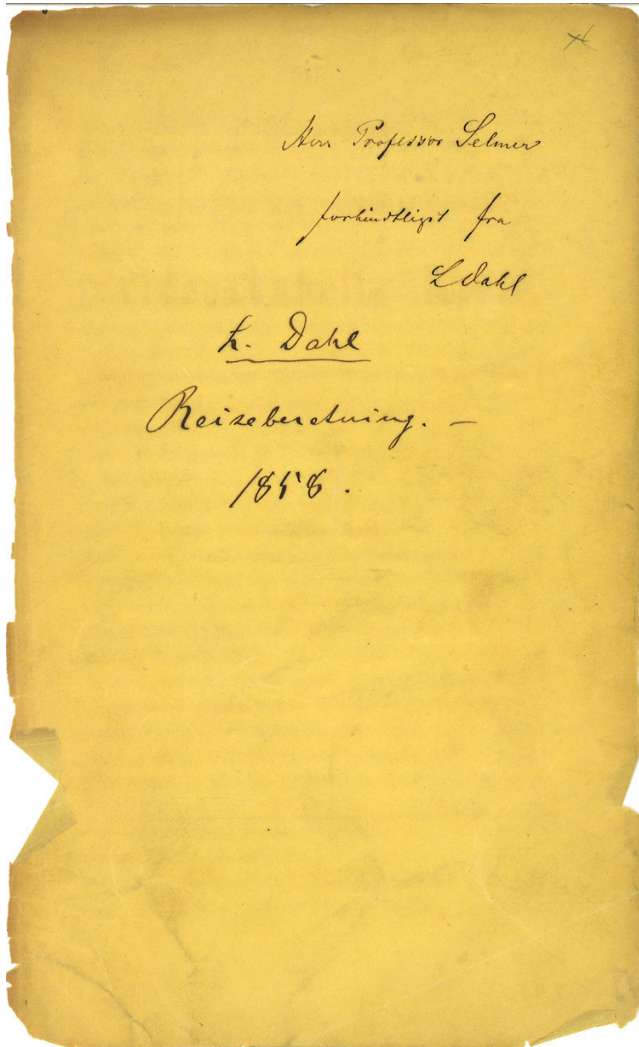 Herr Professor Selmer
forbindtligst fra
LDahl
L. Dahl
Reiseberetning. —
1858.